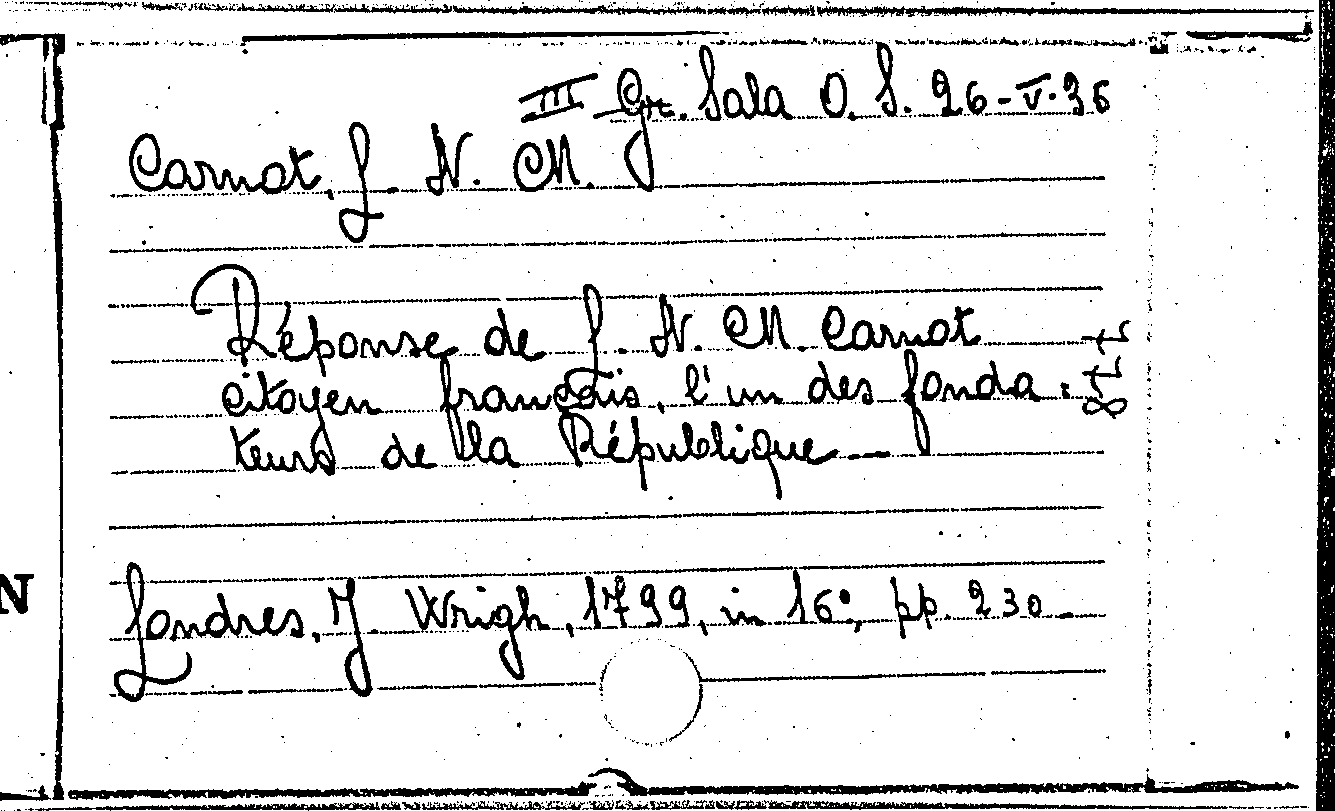 III Gr. Sala O. S. 26-V-36
Carnot, L. N. M.
Réponse de L. N. M. Carnot
citoyen français, l'un des fonda=
teurs de la République—
Londres, J. Wrigh, 1799, in 16°, pp. 230-
N